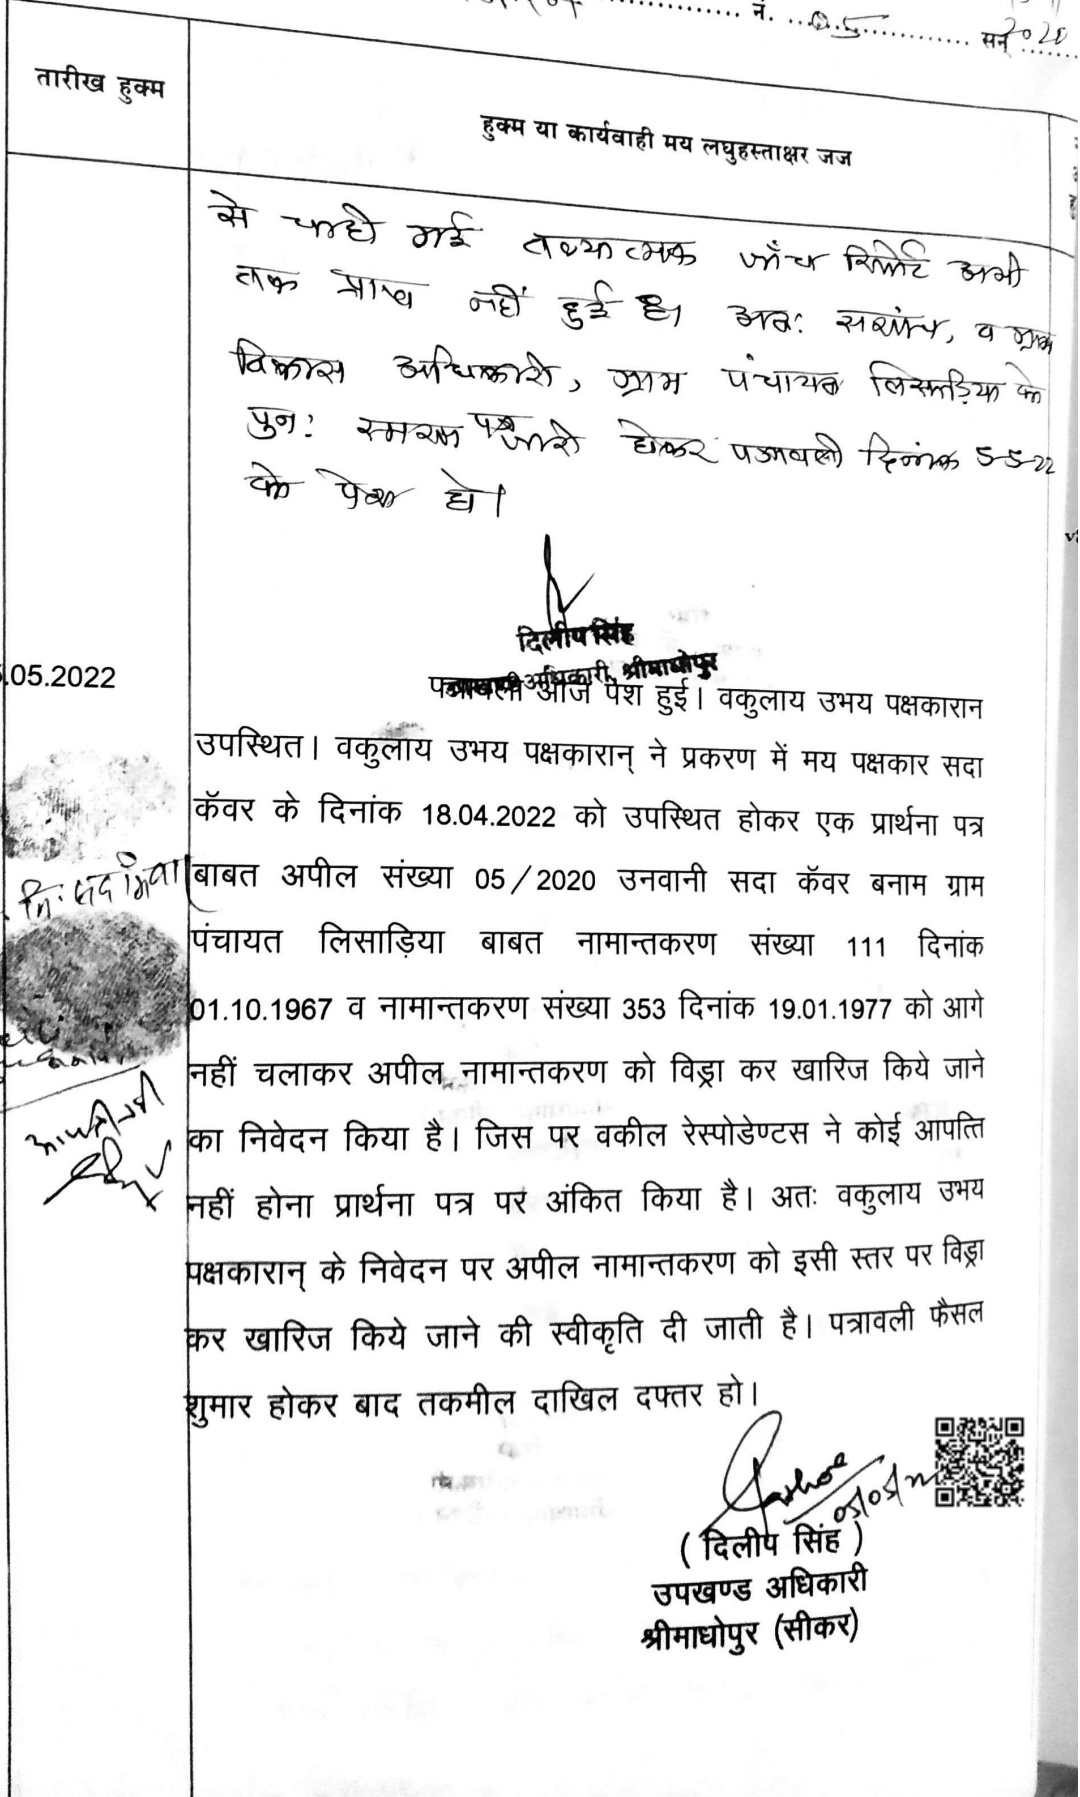 नं. 05 सन् 2020
तारीख हुक्म
हुक्म या कार्यवाही मय लघुहस्ताक्षर जज
से चाही गई तथ्यात्मक जाँच रिपोर्ट अभी
तक प्राप्त नहीं हुई है। अतः सरपंच, व ग्राम
विकास अधिकारी, ग्राम पंचायत लिसाड़िया को
पुनः स्मरण पत्र जारी होकर पत्रावली दिनांक 5-5-22
को पेश हो।
दिलीप सिंह
अधिकारी, श्रीमाधोपुर
.05.2022
पत्रावली आज पेश हुई। वकुलाय उभय पक्षकारान
उपस्थित। वकुलाय उभय पक्षकारान् ने प्रकरण में मय पक्षकार सदा
कॅवर के दिनांक 18.04.2022 को उपस्थित होकर एक प्रार्थना पत्र
बाबत अपील संख्या 05/2020 उनवानी सदा कॅवर बनाम ग्राम
पंचायत लिसाड़िया बाबत नामान्तकरण संख्या 111 दिनांक
01.10.1967 व नामान्तकरण संख्या 353 दिनांक 19.01.1977 को आगे
नहीं चलाकर अपील नामान्तकरण को विड्रा कर खारिज किये जाने
का निवेदन किया है। जिस पर वकील रेस्पोडेण्टस ने कोई आपत्ति
नहीं होना प्रार्थना पत्र पर अंकित किया है। अतः वकुलाय उभय
पक्षकारान् के निवेदन पर अपील नामान्तकरण को इसी स्तर पर विड्रा
कर खारिज किये जाने की स्वीकृति दी जाती है। पत्रावली फैसल
शुमार होकर बाद तकमील दाखिल दफ्तर हो।
( दिलीप सिंह )
उपखण्ड अधिकारी
श्रीमाधोपुर (सीकर)